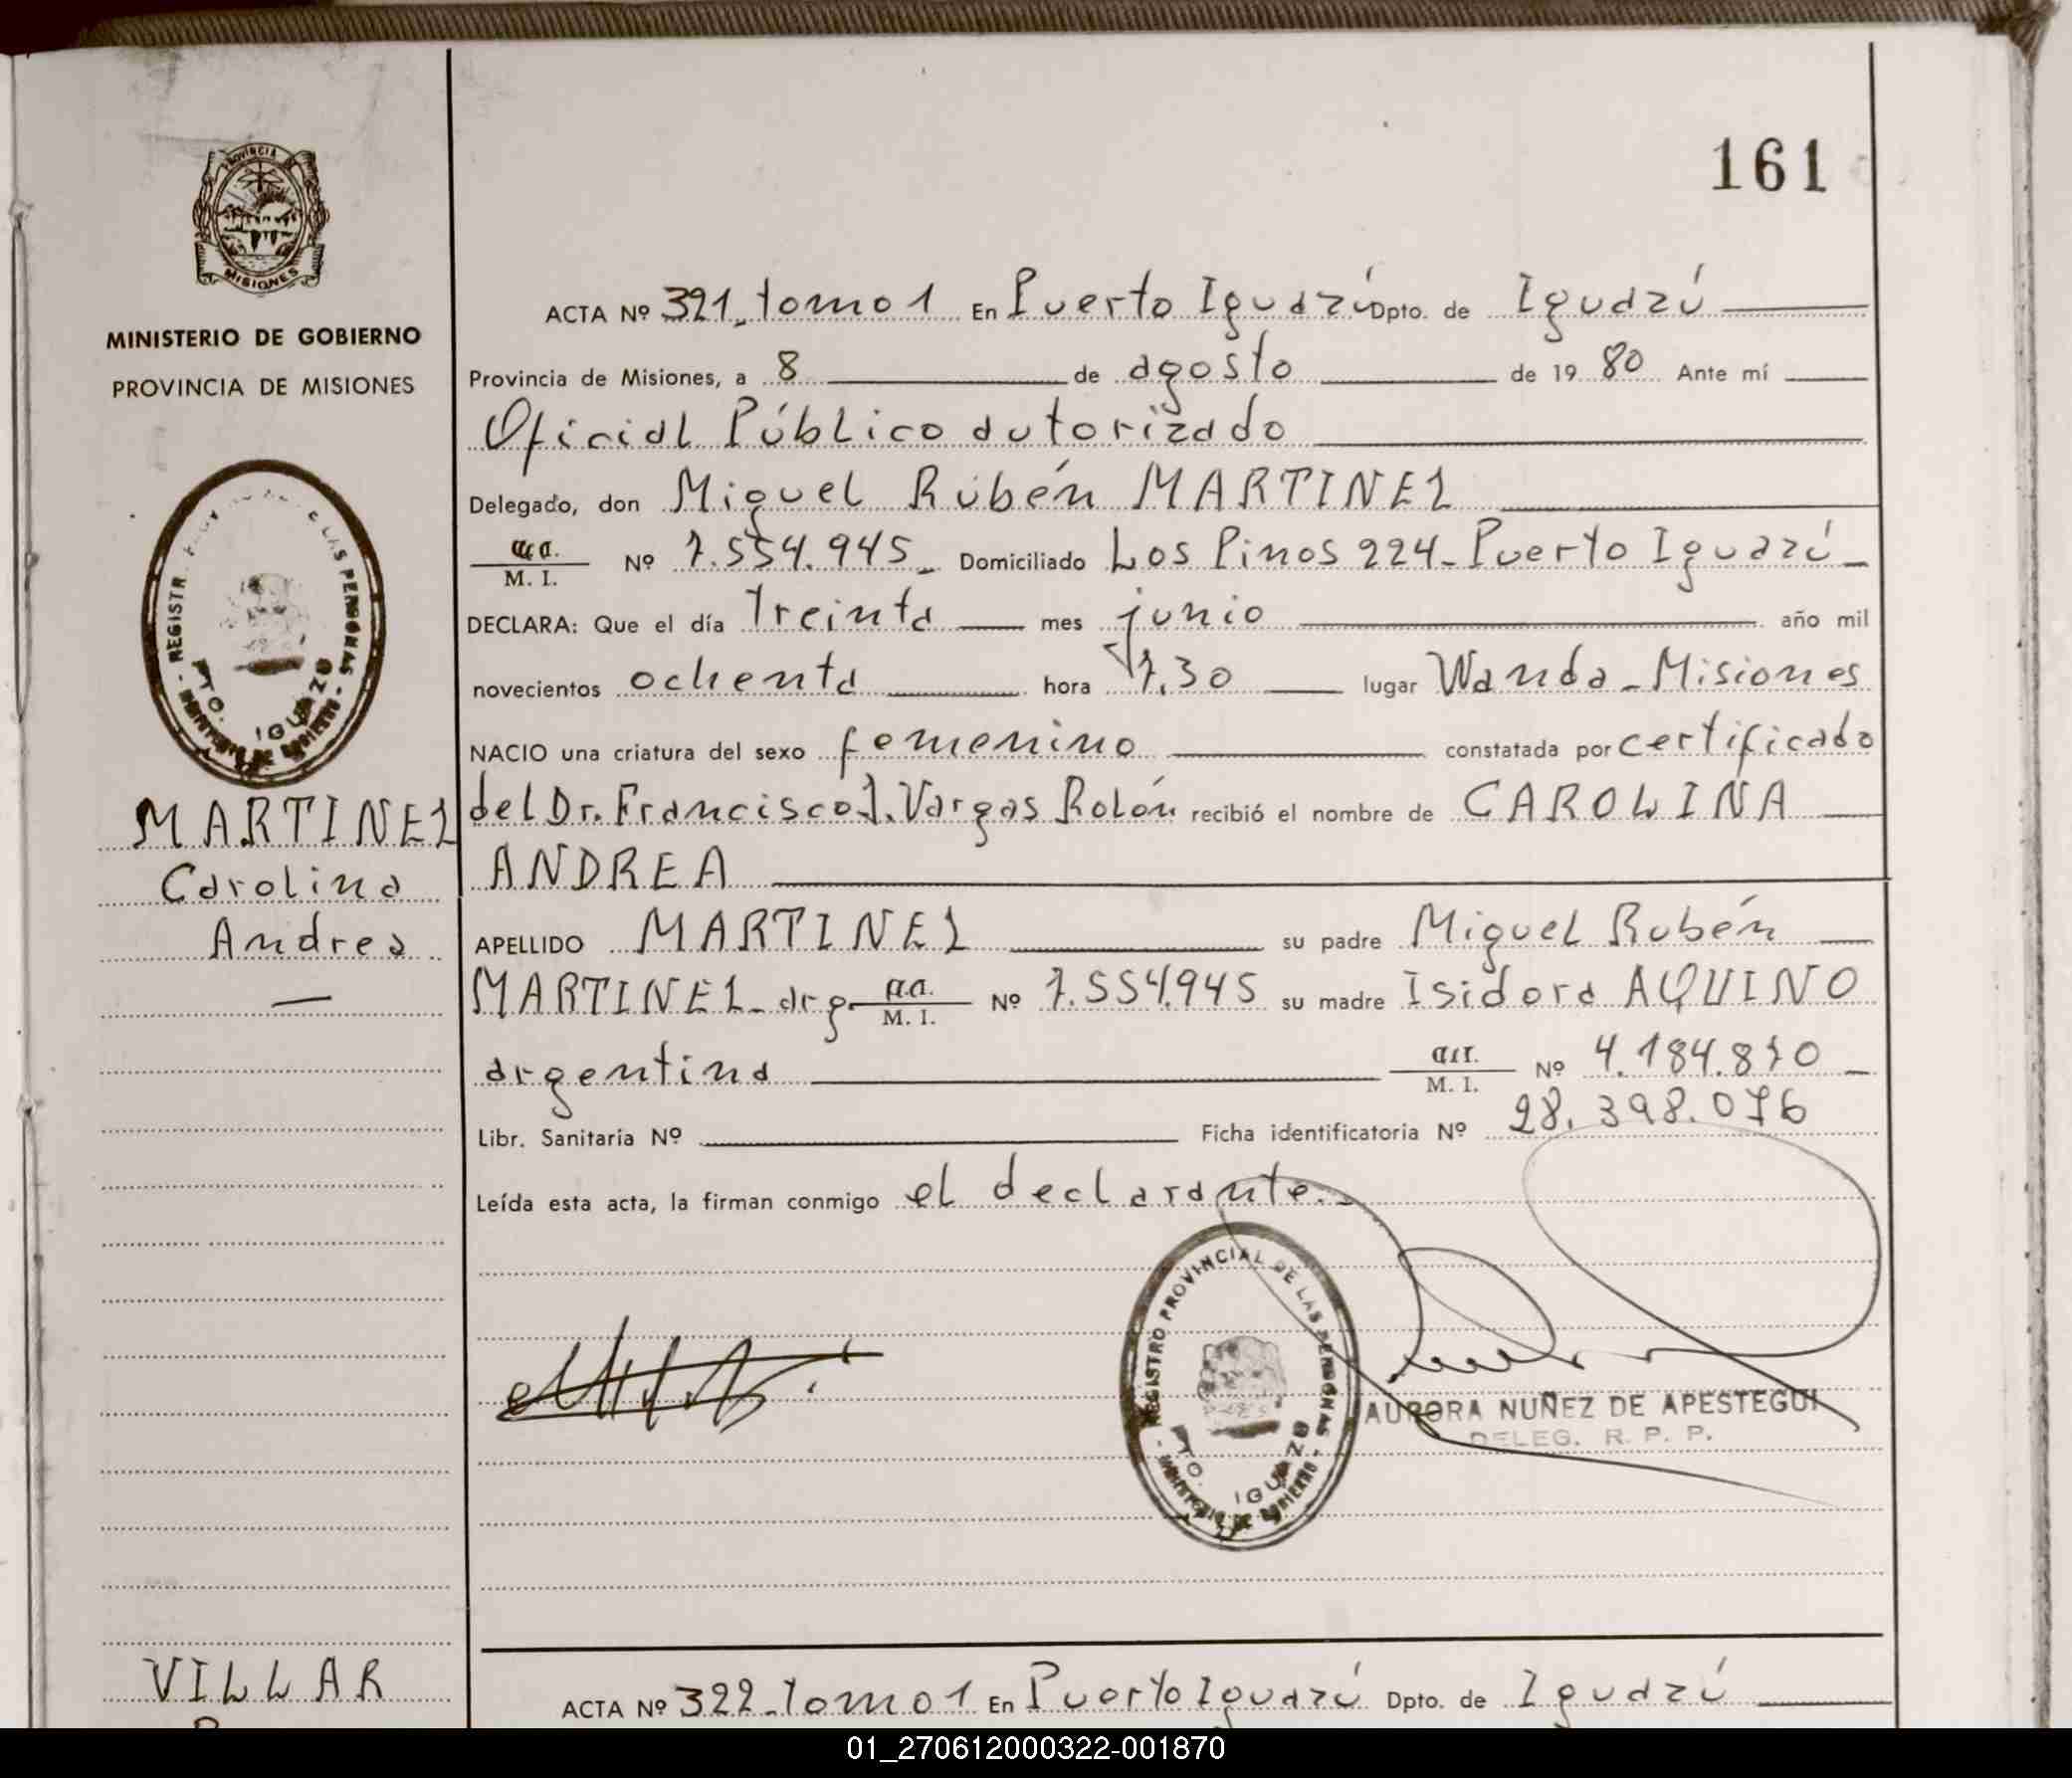 161
PROVINCIA
MISIONES
MINISTERIO DE GOBIERNO
PROVINCIA DE MISIONES
ACTA Nº 321_tomo 1 En Puerto Iguazú Dpto. de Iguazú
Provincia de Misiones, a 8 de agosto de 1980 Ante mí
Oficial Público autorizado
Delegado, don Miguel Rubén MARTINEZ
M. I. Nº 7.554.945_ Domiciliado Los Pinos 224_Puerto Iguazú_
DECLARA: Que el día treinta mes junio año mil
novecientos ochenta hora 7,30 lugar Wanda_Misiones
NACIO una criatura del sexo femenino constatada por certificado
del Dr. Francisco J. Vargas Rolón recibió el nombre de CAROLINA
ANDREA
APELLIDO MARTINEZ su padre Miguel Rubén
MARTINEZ_arg. M. I. Nº 7.554.945 su madre Isidora AQUINO
argentina M. I. Nº 4.184.870_
Libr. Sanitaria Nº Ficha identificatoria Nº 28.398.076
Leída esta acta, la firman conmigo el declarante._
REGISTRO PROVINCIAL DE LAS PERSONAS - MINISTERIO DE GOBIERNO -
PTO. IGUAZU
AURORA NUÑEZ DE APESTEGUI
DELEG. R. P. P.
REGISTR LAS PERSONAS - MINISTERIO DE GOBIERNO -
PTO. IGUAZU
MARTINEZ
Carolina
Andrea
—
VILLAR
ACTA Nº 322_tomo 1 En Puerto Iguazú Dpto. de Iguazú
01_270612000322-001870